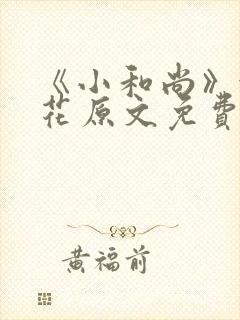 《小和尚》
花原文免费
黄福前